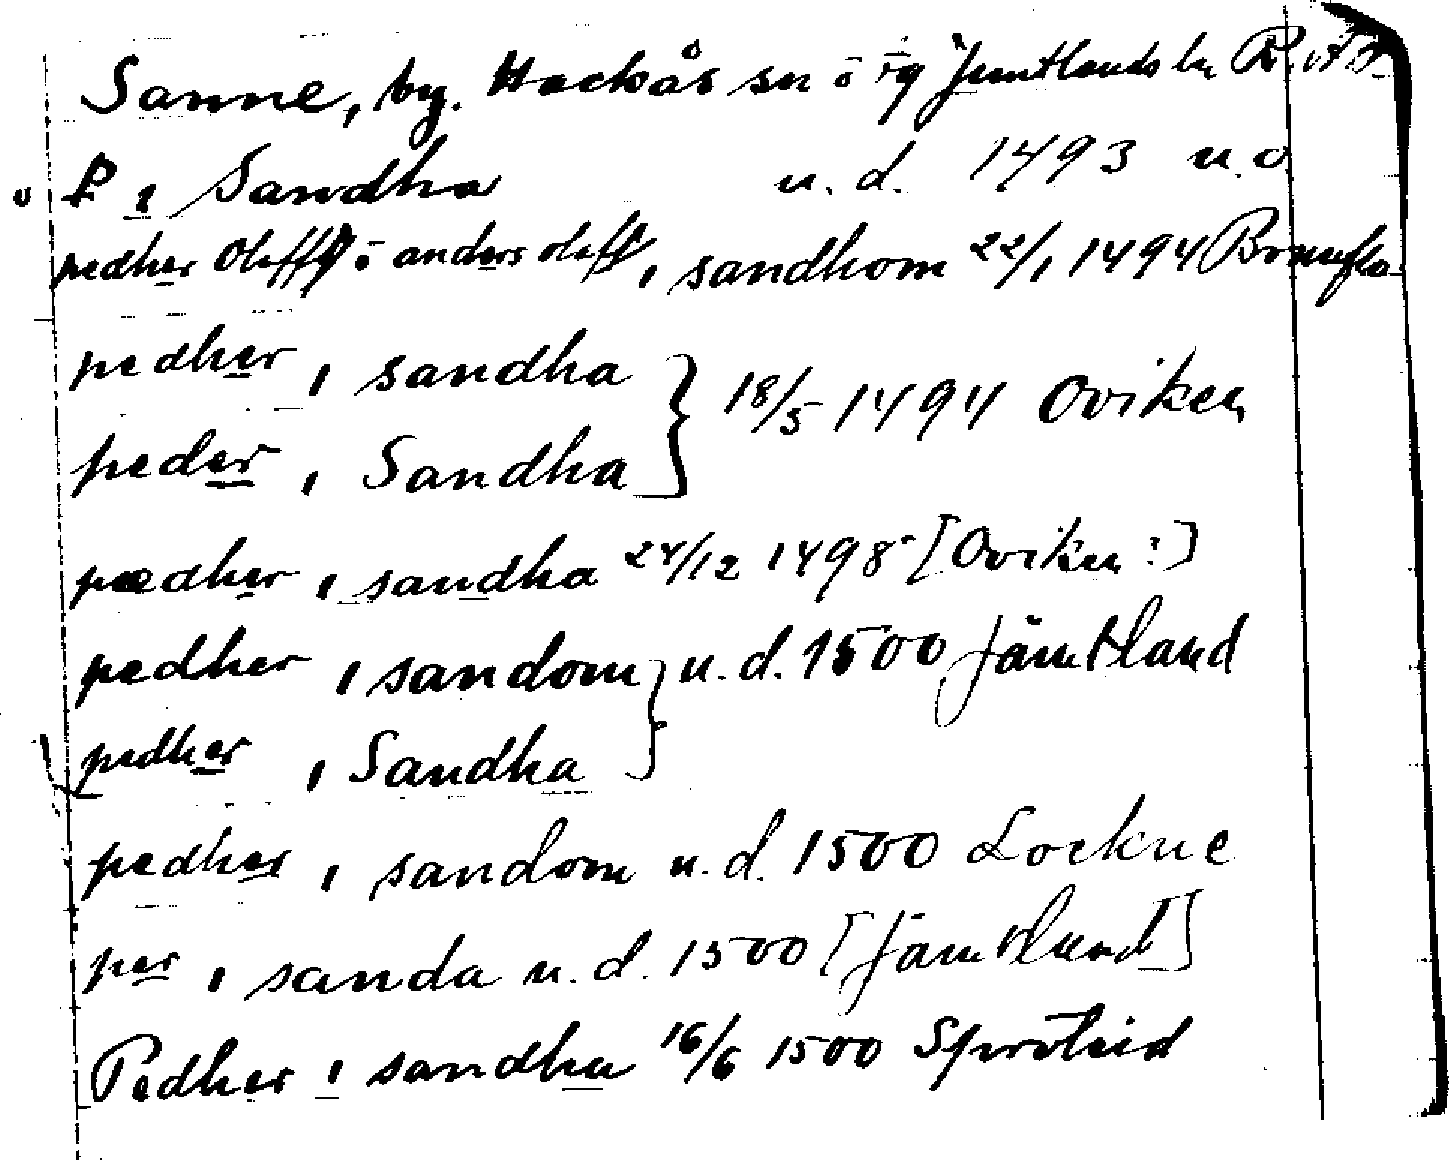 Sanne, by. Hackås sn o rg Jämtlands ln
P i Sandha u. d. 1493 u. o
pedher Oleff o anders oleff i sandhom 22/1 1494 Brunflo
pedher i sandha } 18/5 1494 Oviken
peder i Sandha
pædher i sandha 24/12 1498 [Oviken?]
pedher i sandom } u. d. 1500 Jämtland
pedher i Sandha
pedher i sandom u. d. 1500 Lockne
per i sanda u. d. 1500 [Jämtland]
Pedher i sandha 16/6 1500 Sproteid